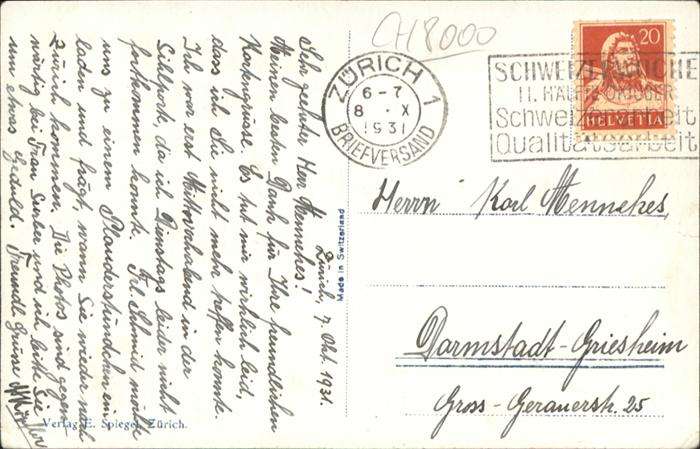 CH 8000
ZÜRICH 1
6-7
8. X
1931
BRIEFVERSAND
SCHWEIZERWOCHE
II. HÄLFTE OKTOBER
Schweizerarbeit
Qualitätsarbeit
20
HELVETIA
Zürich, 7. Okt. 1931.
Sehr geehrter Herr Mennekes!
Meinen besten Dank für Ihre freundlichen
Kartengrüsse. Es tut mir wirklich leid,
dass ich Sie nicht mehr treffen konnte.
Ich war erst Mittwochabend in der
Sillpork, da ich Dienstags leider nicht
fortkommen konnte. Frl. Schmid möchte
uns zu einem Plauderstündchen ein-
laden und frägt, wann Sie wieder nach
Zürich kommen. Die Photos sind gegen-
wärtig bei Frau Surber und ich bitte Sie
um etwas Geduld. Freundl. Grüsse
Made in Switzerland
Verlag E. Spiegel, Zürich.
Herrn Karl Mennekes,
Darmstadt-Griesheim
Gross-Gerauerstr. 25